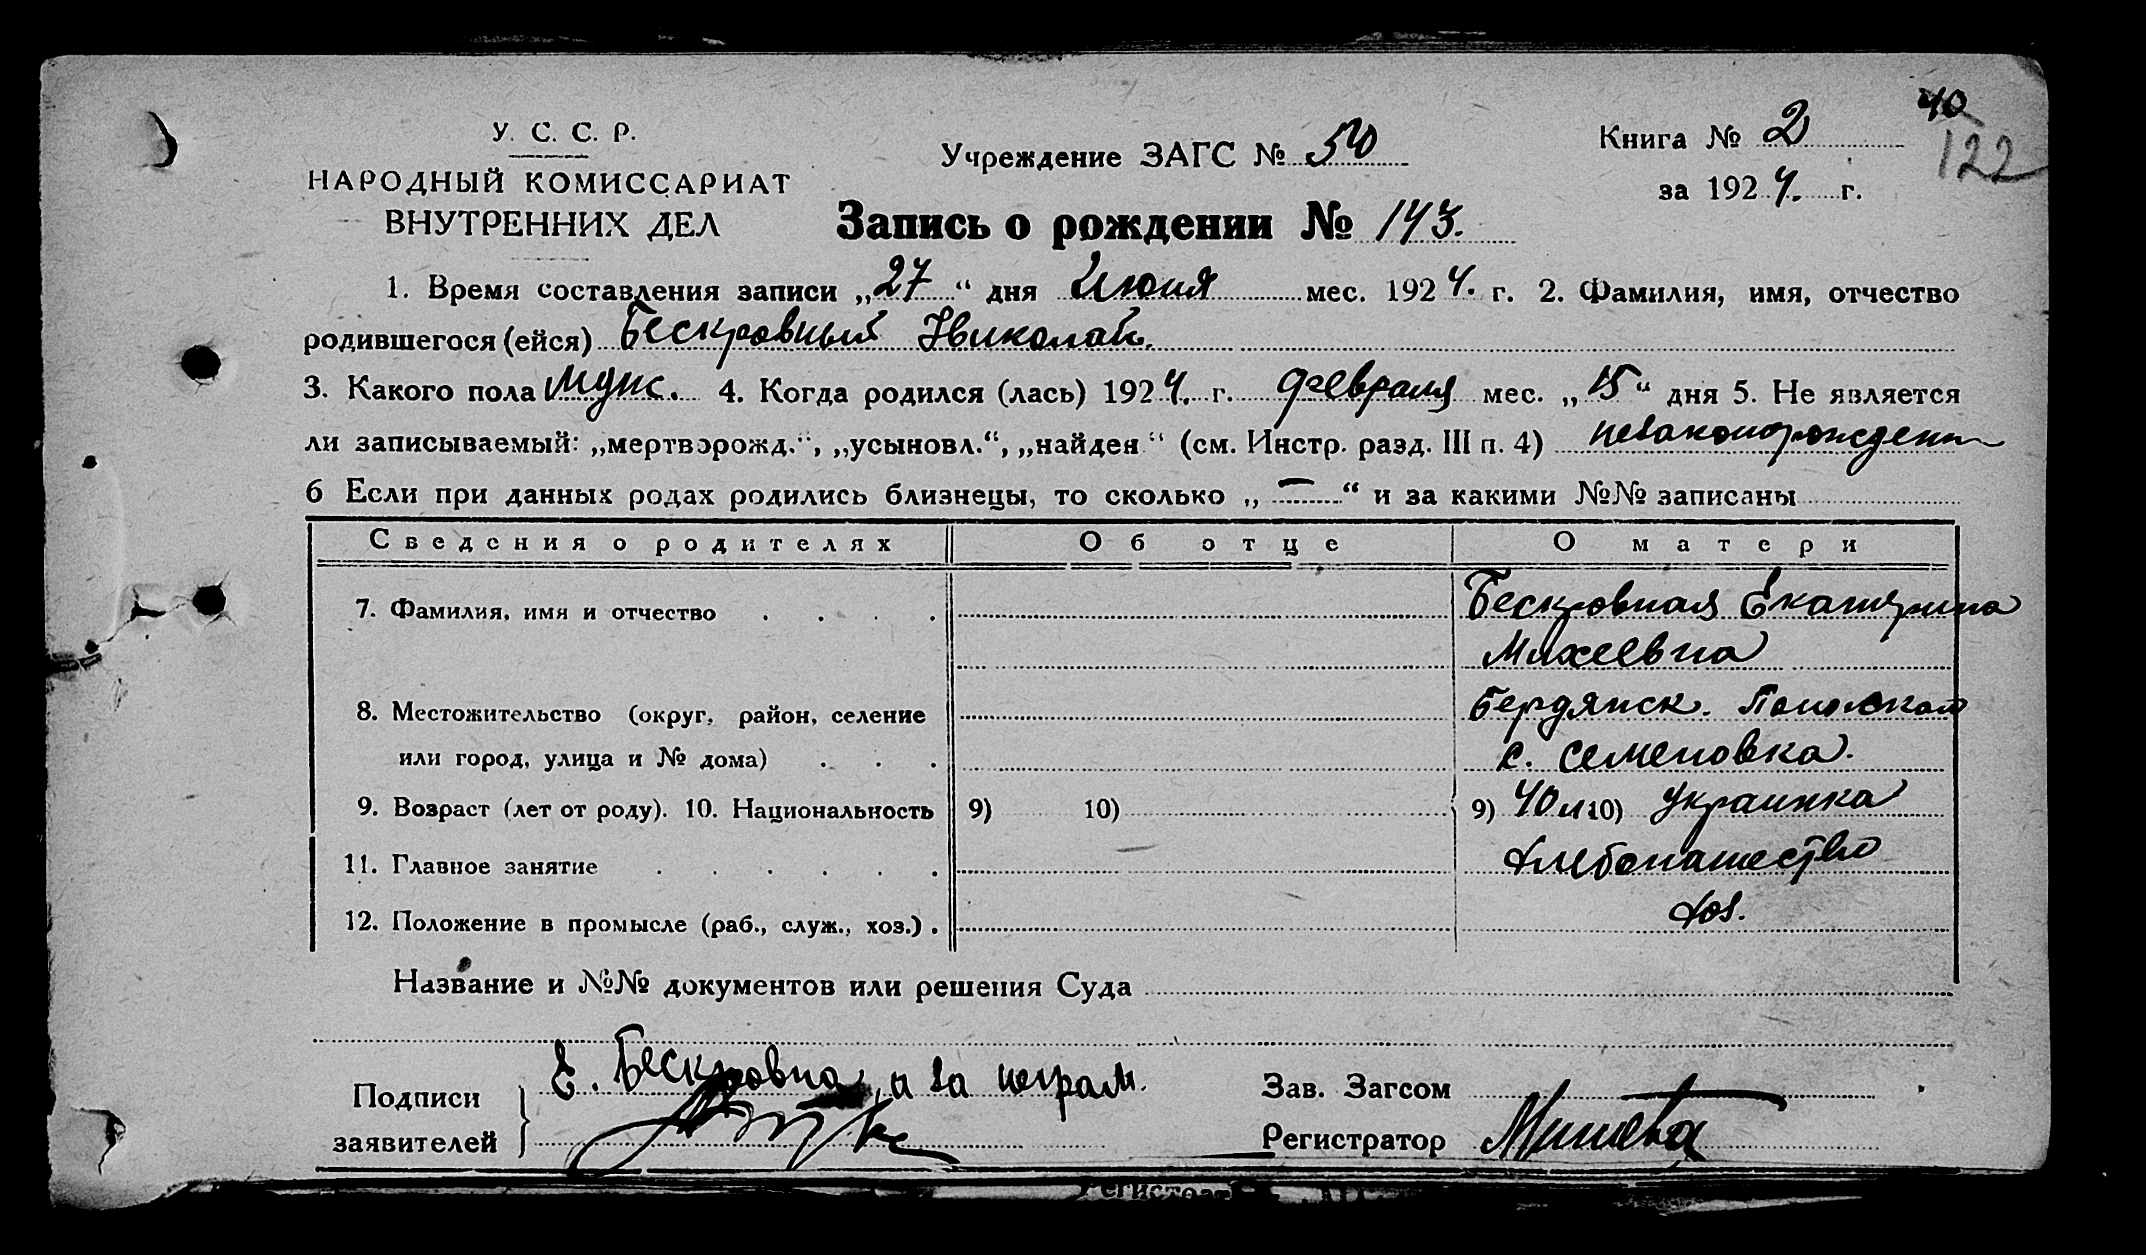 40
122
У. С. С. Р.
НАРОДНЫЙ КОМИССАРИАТ
ВНУТРЕННИХ ДЕЛ
Учреждение ЗАГС № 50
Книга № 2
за 1924. г.
Запись о рождении № 143.
1. Время составления записи „27“ дня Июня мес. 1924. г. 2. Фамилия, имя, отчество
родившегося (ейся) Бескровный Николай.
3. Какого пола Муж. 4. Когда родился (лась) 1924. г. февраля мес. „15“ дня 5. Не является
ли записываемый: „мертворожд.“, „усыновл.“, „найден“ (см. Инстр. разд. III п. 4) незаконорожден
6 Если при данных родах родились близнецы, то сколько „—“ и за какими №№ записаны
Сведения о родителях Об отце О матери
7. Фамилия, имя и отчество Бескровная Екатерина
Михеевна
8. Местожительство (округ, район, селение Бердянск.
или город, улица и № дома) с. Семеновка.
9. Возраст (лет от роду). 10. Национальность 9) 10) 9) 40 л 10) Украинка
11. Главное занятие Хлебопашество
12. Положение в промысле (раб., служ., хоз.) Хоз.
Название и №№ документов или решения Суда
Е. Бескровна а за неграм.
Подписи
заявителей
Зав. Загсом
Регистратор